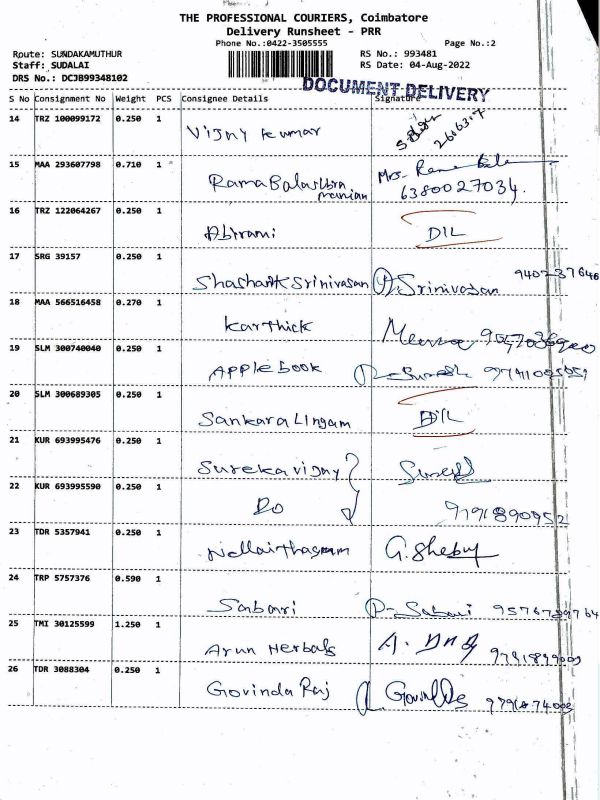 THE PROFESSIONAL COURIERS, Coimbatore
Delivery Runsheet - PRR
Phone No.:0422-3505555 Page No.:2
Route: SUNDAKAMUTHUR RS No.: 993481
Staff: SUDALAI RS Date: 04-Aug-2022
DRS No.: DCJB99348102
DOCUMENT DELIVERY
S No Consignment No Weight PCS Consignee Details Signature
14 TRZ 100099172 0.250 1
Vijay Kumar
15 MAA 293607798 0.710 1
Mrs. Rama
Rama Balasubra 6380027034.
manian
16 TRZ 122064267 0.250 1
Abirami DIL
17 SRG 39157 0.250 1
Shashank Srinivasan Srinivasan
18 MAA 566516458 0.270 1
Karthick Meena
19 SLM 300740040 0.250 1
Apple book Suresh
20 SLM 300689305 0.250 1
Sankara Lingam DIL
21 KUR 693995476 0.250 1
Sureka vijay Suresh
22 KUR 693995590 0.250 1
Do 9791890952
23 TDR 5357941 0.250 1
24 TRP 5757376 0.590 1
Sabari Sabari
25 TMI 30125599 1.250 1
Arun Herbals
26 TDR 3088304 0.250 1
Govinda Raj